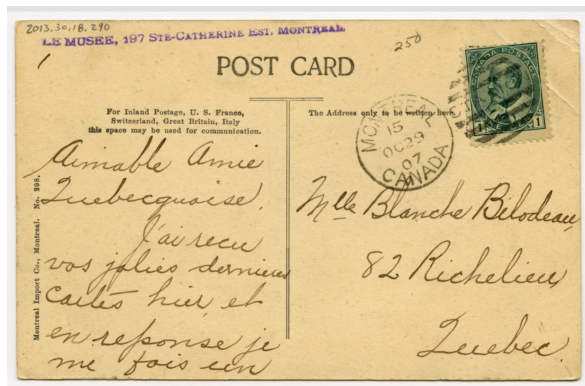 2013.30.1B.290
LE MUSEE, 197 STE-CATHERINE EST, MONTREAL
250
POST CARD
For Inland Postage, U. S. France,
Switzerland, Great Britain, Italy
this space may be used for communication.
The Address only to be written here.
CANADA POSTAGE
1 1
MONTREAL
15
OC 29
07
CANADA
Montreal Import Co., Montreal. No. 298.
Aimable Amie
Quebecquoise,
J'ai recu
vos jolies dernieres
cartes hier, et
en reponse je
me fais un
Mlle Blanche Bilodeau,
82 Richelieu
Quebec.